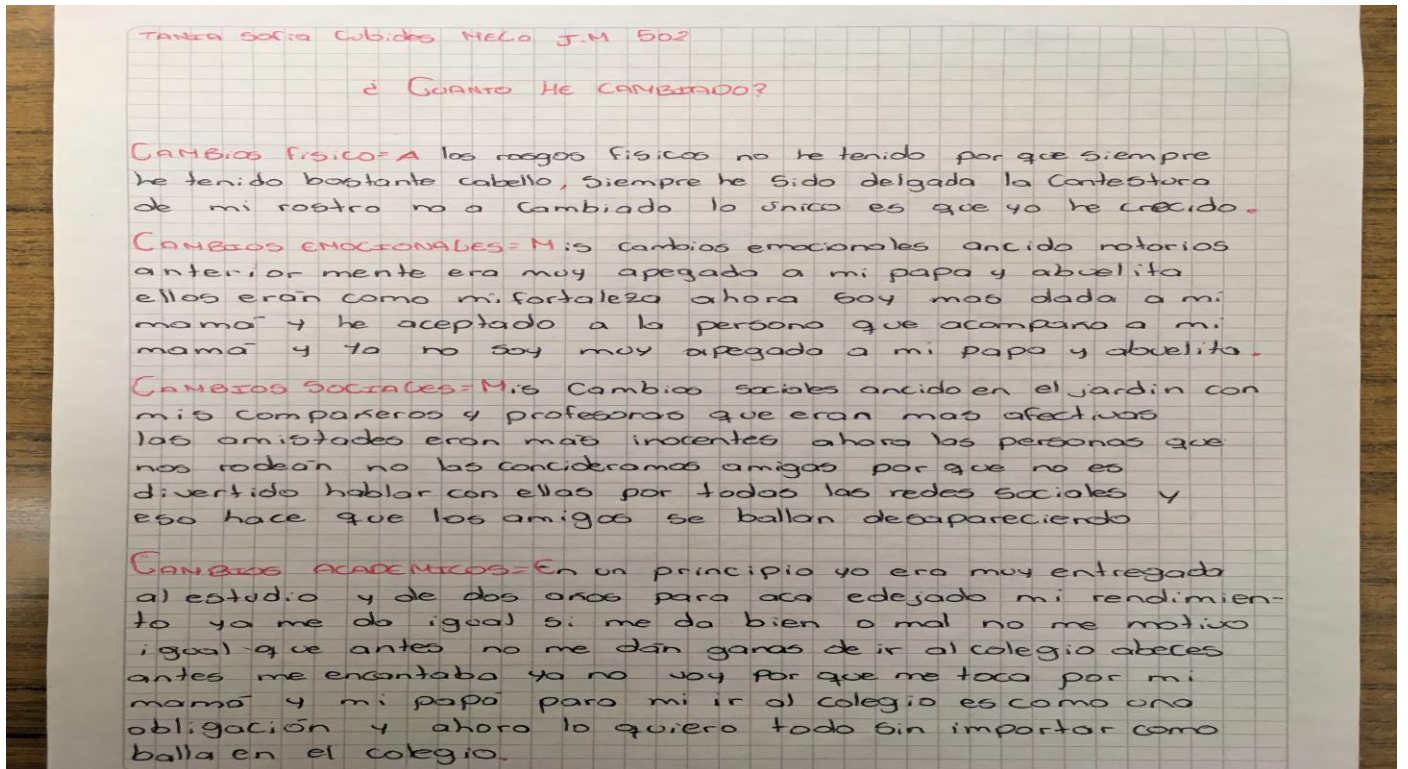 TANIA SOFIA Cubides MELO J.M 502
¿ CUANTO HE CAMBIADO?
CAMBIOS FISICO= A los rasgos fisicos no he tenido por que siempre
he tenido bastante cabello, siempre he sido delgada la contestura
de mi rostro no a cambiado lo único es que yo he crecido.
CAMBIOS EMOCIONALES= Mis cambios emocionales ancido notorios
anterior mente era muy apegada a mi papa y abuelita
ellos erán como mi fortaleza ahora soy mas dada a mi
mamá y he aceptado a la persona que acompaña a mi
mamá y ya no soy muy apegada a mi papa y abuelita.
CAMBIOS SOCIALES= Mis cambios sociales ancido en el jardin con
mis compañeros y profesoras que eran mas afectivas
las amistades eron mas inocentes ahora las personas que
nos rodeán no las concideramos amigas por que no es
divertido hablar con ellas por todas las redes sociales y
eso hace que los amigos se ballan desapareciendo
CAMBIOS ACADEMICOS= En un principio yo era muy entregada
al estudio y de dos años para aca edejado mi rendimien-
to ya me da igual si me da bien o mal no me motivo
igual que antes no me dán ganas de ir al colegio abeces
antes me encantaba ya no voy por que me toca por mi
mamá y mi papá para mi ir al colegio es como una
obligación y ahora lo quiero todo sin importar como
balla en el colegio.